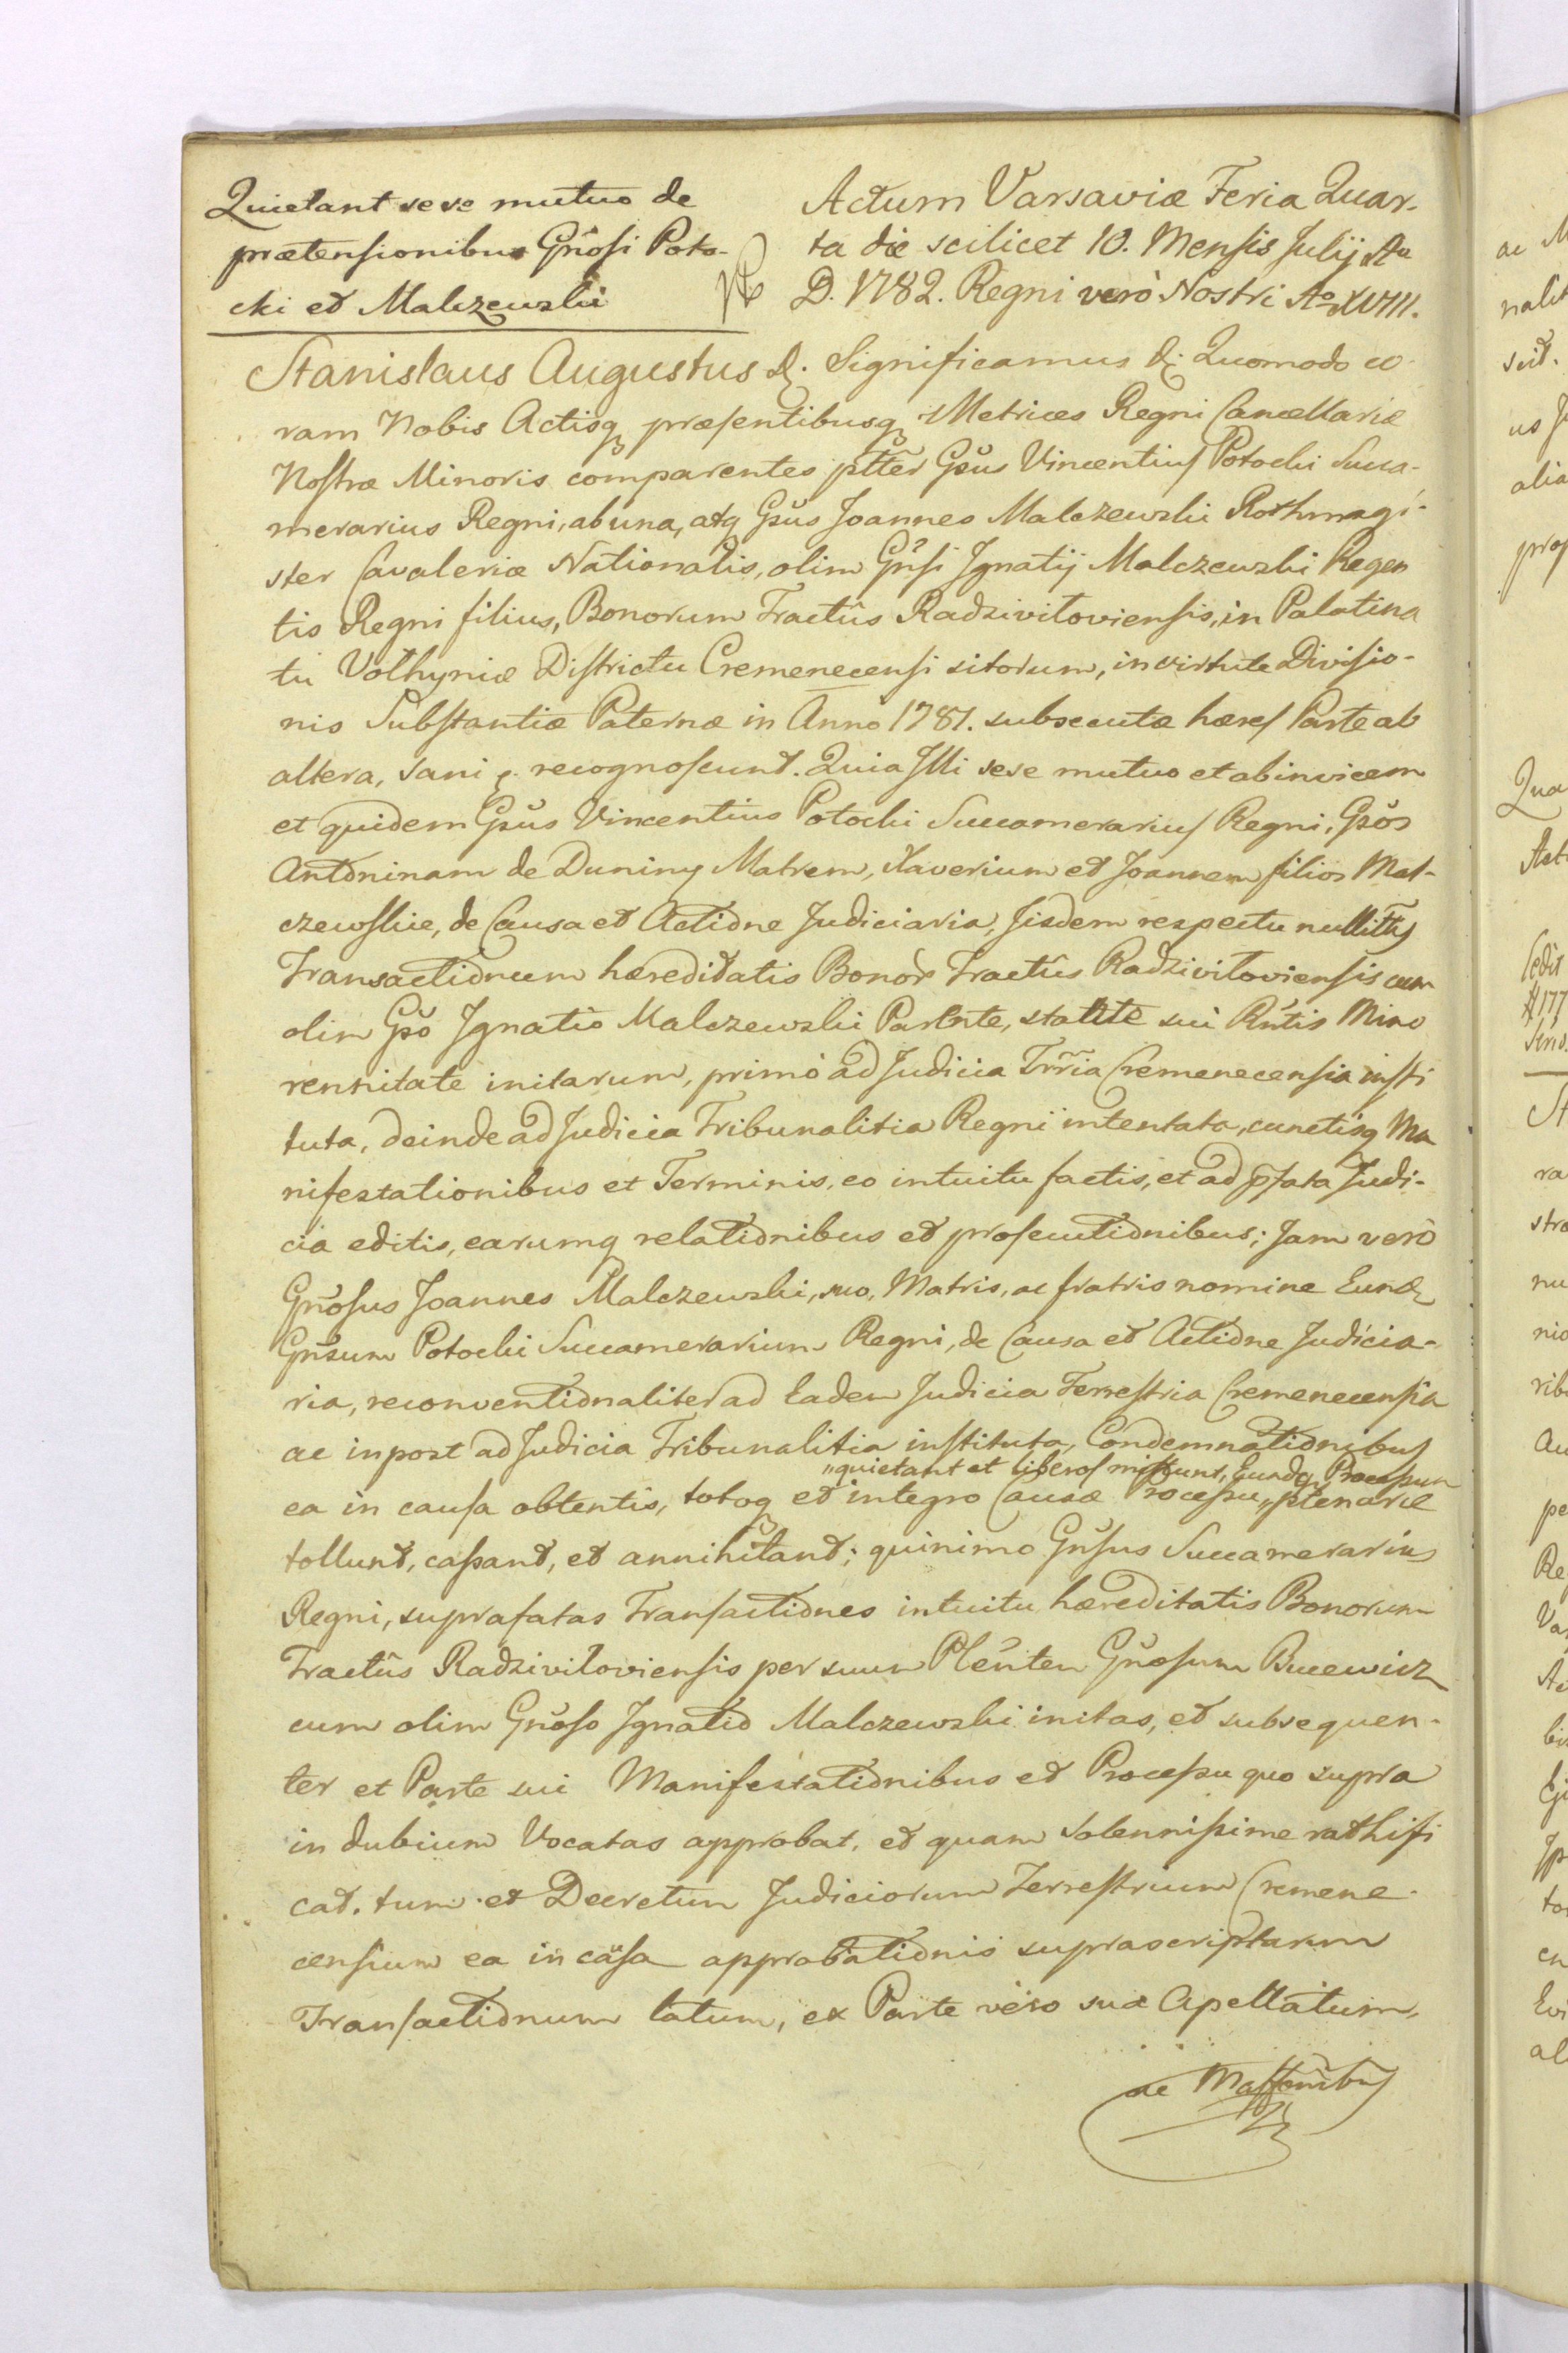 Quietant sese mutuo de
prætensionibus Gñosi Poto-
cki et Malczewski
Actum Varsaviæ Feria Quar-
ta die scilicet 10. Mensis Julij Aº
D. 1782. Regni verò Nostri Aº XVIII.
Stanislaus Augustus &. Significamus &. Quomodo co
ram Nobis Actisq præsentibusq Metrices Regni Cancellariæ
Nostræ Minoris comparentes pltter Gsus Vincentius Potocki Succa-
merarius Regni, ab una, atq Gsus Joannes Malczewski Rothmagi-
ster Cavaleriæ Nationalis, olim Gñsi Jgnatij Malczewski Regen
tis Regni filius, Bonorum Tractûs Radziviloviensis, in Palatina
tu Volhyniæ Districtu Cremenecensi sitorum, in virtute Divisio-
nis Substantiæ Paternæ in Anno 1781. subsecutæ hæres Parte ab
altera, sani &. recognoscunt. Quia Jlli sese mutuo et abinvicem
et quidem Gsus Vincentius Potocki Succamerarius Regni, Gsos
Antoninam de Duniny Matrem, Xaverium et Joannem filios Mal-
czewskie, de Causa et Actione Judiciaria, Jisdem respectu nullittis
Transactionum hæreditatis Bonor Tractûs Radziviloviensis cum
olim Gso Jgnatio Malczewski Parlnte, statte sui Rñtis Mino
rennitate initarum, primò ad Judicia Trria Cremenecensia insti
tuta, deinde ad Judicia Tribunalitia Regni intentata, cunctisq Ma
nifestationibus et Terminis, eo intuitu factis, et ad pfata Judi-
cia editis, earumq relationibus et prosecutionibus; Jam verò
Gñosus Joannes Malczewski, suo, Matris, ac fratris nomine Eund
Gñsum Potocki Succamerarium Regni, de Causa et Actione Judicia-
ria, reconventionaliter ad Eadem Judicia Terrestria Cremenecensia
ac inpost ad Judicia Tribunalitia instituta, Condemnationibus
"quietant et liberos mittunt, Eundq Processum
ea in causa obtentis, totoq et integro Causæ Processu " plenarie
tollunt, cassant, et annihilant; quinimo Gñsus Succamerarius
Regni, suprafatas Transactiones intuitu hæreditatis Bonorum
Tractûs Radziviloviensis per suum Plenten Gñosum Bucewicz
cum olim Gñoso Jgnatio Malczewski initas, et subsequen-
ter et Parte sui Manifestationibus et Processu quo supra
in dubium Vocatas approbat, et quam solennissime rathifi
cat. tum et Decretum Judiciorum Terrestrium Cremene-
censium ea in cãsa approbationis suprascriptarum
Transactionum latum, ex Parte vero sua Apellatum,